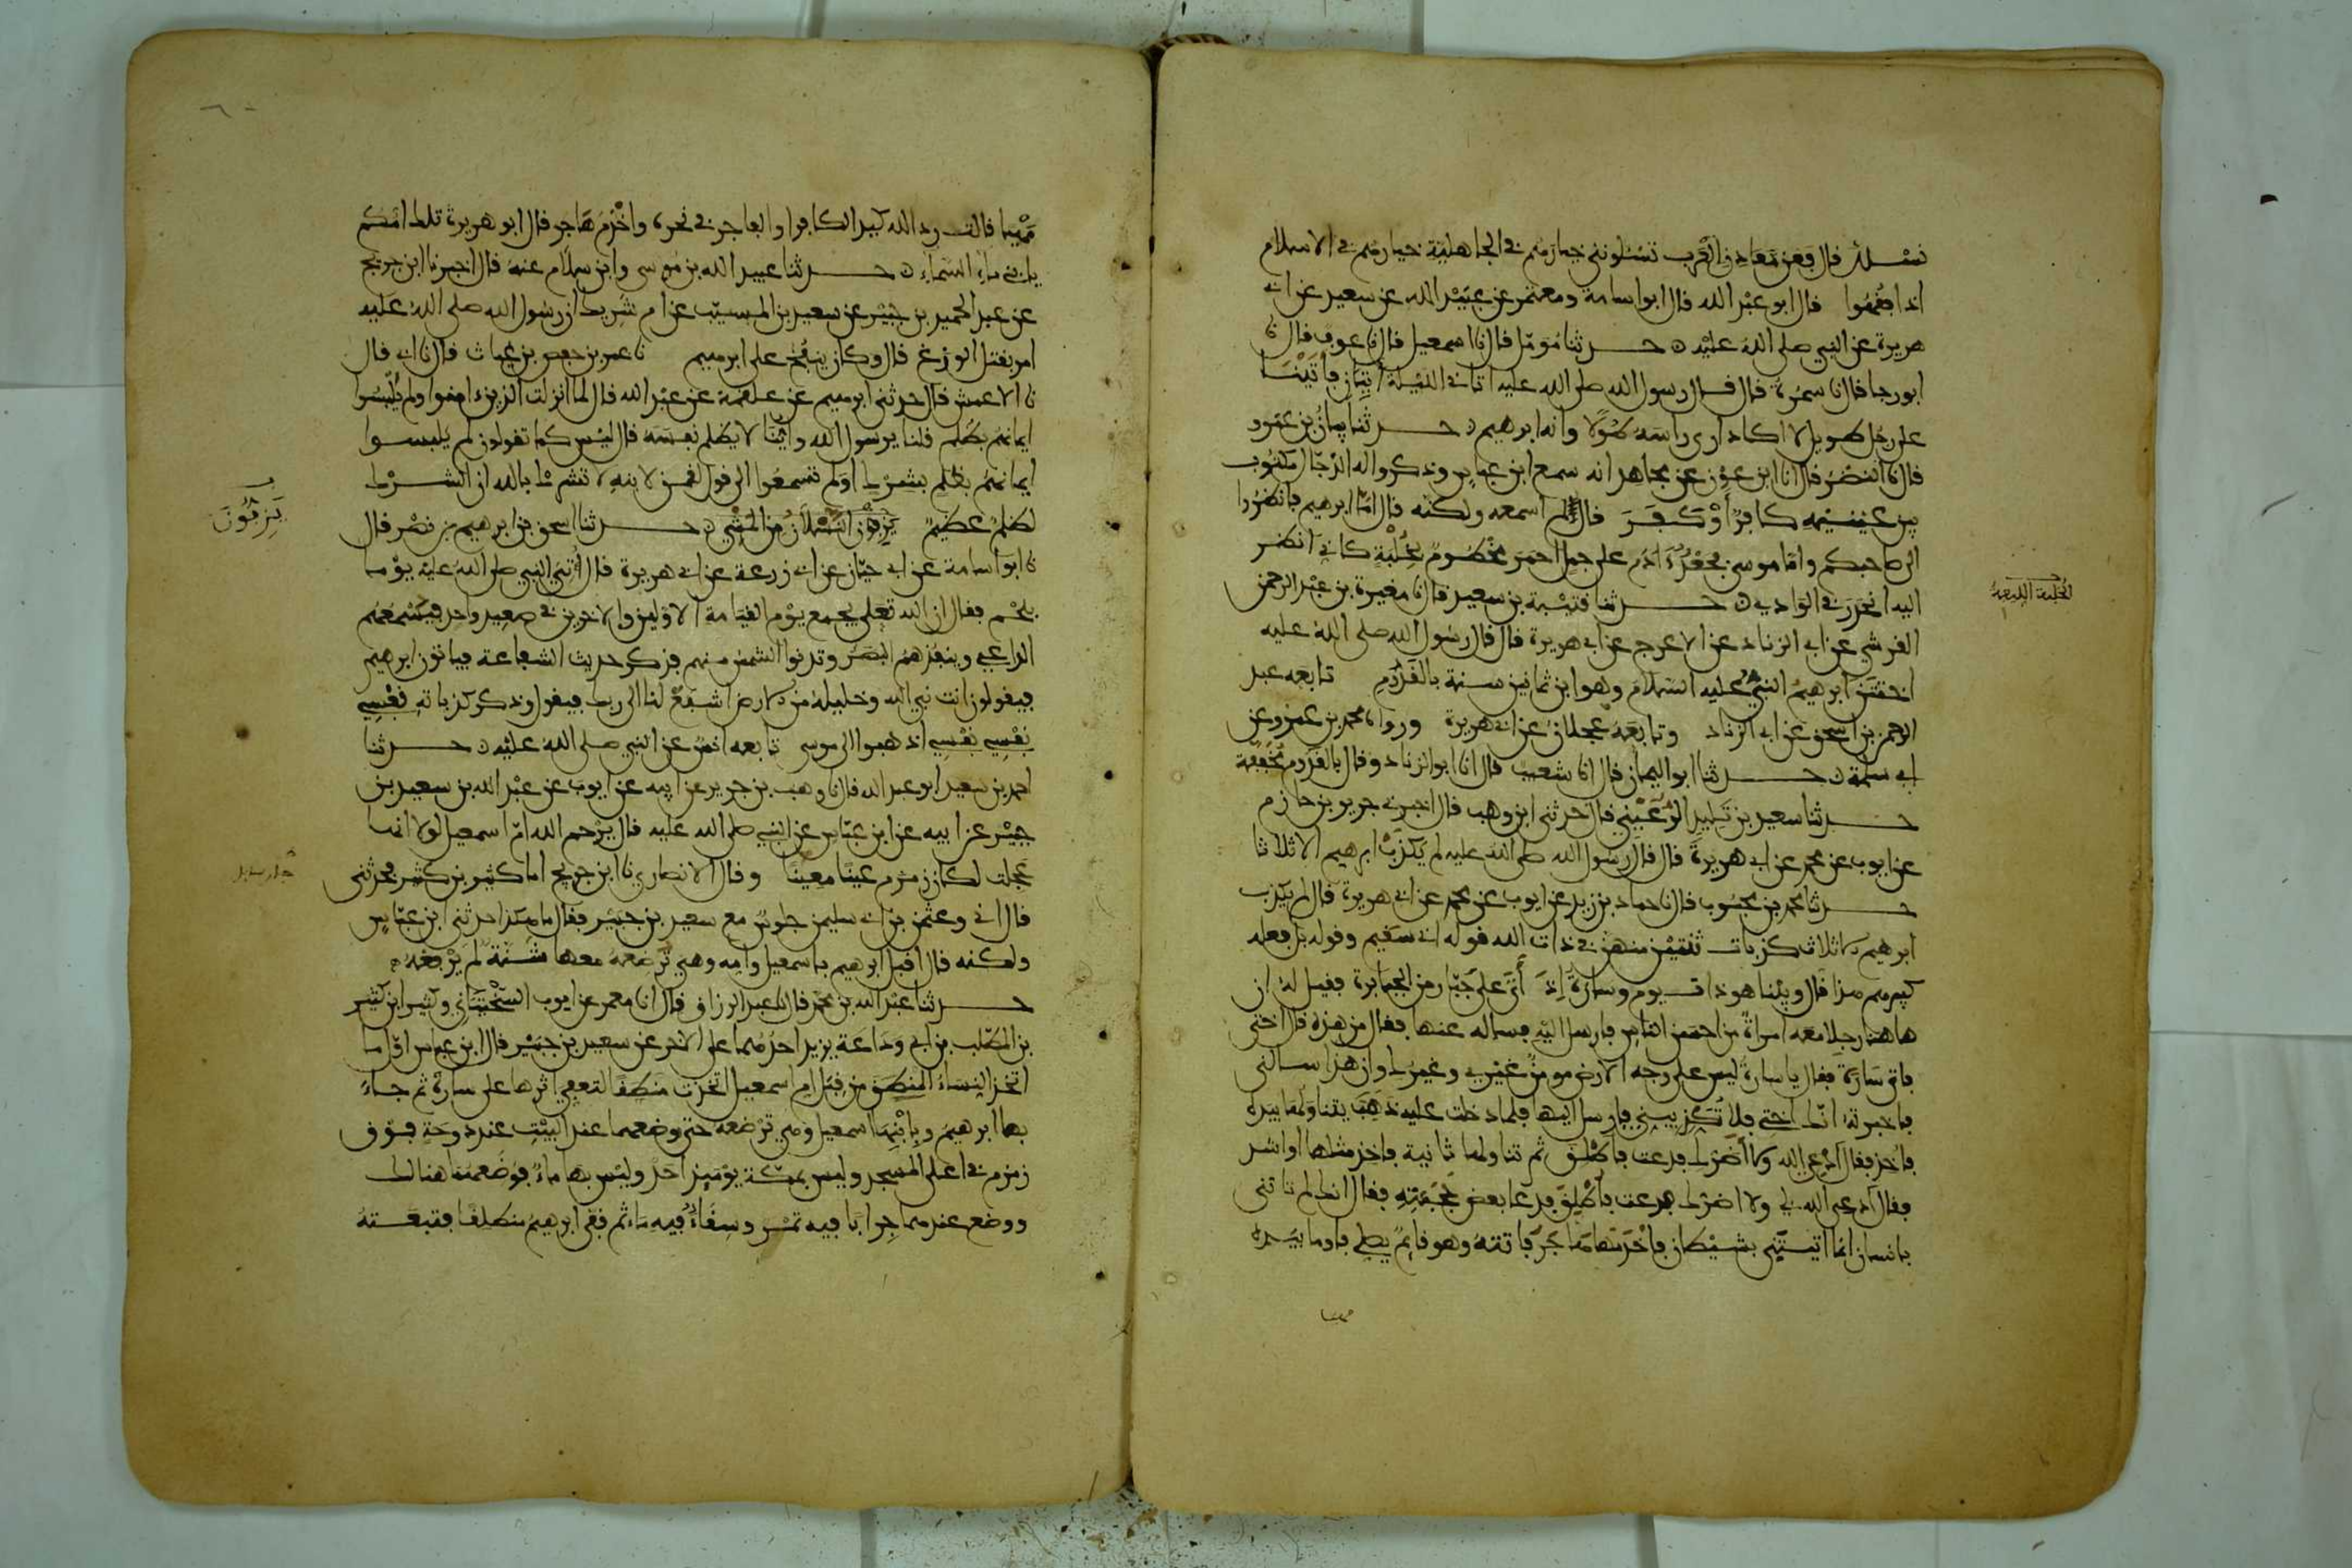 نسئلك قال فعن معادن العرب تسئلونني خيارهم في الجاهلية خيارهم في الاسلام
اذا فقهوا قال ابو عبد الله قال ابو اسامة ومعتمر عن عبيد الله عن سعيد عن ابي
هريرة عن النبي صلى الله عليه حدثنا مؤمل قال نا اسمعيل قال نا عوف قال نا
ابو رجا قال نا سمرة قال قال رسول الله صلى الله عليه اتاني الليلة اتيان فاتينا
على رجل طويل لا اكاد ارى راسه طولا وانه ابرهيم حدثنا بيان بن عمرو
قال نا النضر قال انا ابن عون عن مجاهد انه سمع ابن عباس وذكروا له الدجال مكتوب
بين عينيه كافر او كفر قال لم اسمعه ولكنه قال اما ابرهيم فانظروا
الى صاحبكم واما موسى فجعد ادم على جمل احمر مخطوم بخلبة كاني انظر
الخلبة الليفة
اليه انحدر في الوادي حدثنا قتيبة بن سعيد قال نا مغيرة بن عبد الرحمن
القرشي عن ابي الزناد عن الاعرج عن ابي هريرة قال قال رسول الله صلى الله عليه
اختتن ابرهيم النبي عليه السلام وهو ابن ثمانين سنة بالقدوم تابعه عبد
الرحمن بن اسحق عن ابي الزناد وتابعه عجلان عن ابي هريرة ورواه محمد بن عمرو عن
ابي سلمة حدثنا ابو اليمان قال انا شعيب قال انا ابو الزناد وقال بالقدوم مخففة
حدثنا سعيد بن تليد الرعيني قال حدثني ابن وهب قال اخبرني جرير بن حازم
عن ايوب عن محمد عن ابي هريرة قال قال رسول الله صلى الله عليه لم يكذب ابرهيم الا ثلاثا
حدثنا محمد بن محبوب قال نا حماد بن زيد عن ايوب عن محمد عن ابي هريرة قال لم يكذب
ابرهيم الا ثلاث كذبات ثنتين منهن في ذات الله قوله اني سقيم وقوله بل فعله
كبيرهم هذا قال وبينا هو ذات يوم وسارة اذ اتى على جبار من الجبابرة فقيل له ان
هاهنا رجلا معه امراة من احسن الناس فارسل اليه فساله عنها فقال من هذه قال اختي
فاتى سارة فقال يا سارة ليس على وجه الارض مومن غيري وغيرك وان هذا سالني
فاخبرته انك اختي فلا تكذبيني فارسل اليها فلما دخلت عليه ذهب يتناولها بيده
فاخذ فقال ادعي الله ولا اضرك فدعت فاطلق ثم تناولها ثانية فاخذ مثلها او اشد
فقال ادعي الله لي ولا اضرك فدعت فاطلق فدعا بعض حجبته فقال انك لم تاتني
بانسان انما اتيتني بشيطان فاخدمها هاجر فاتته وهو قائم يصلي فاوما بيده
مهيا
مهيا قالت رد الله كيد الكافر او الفاجر في نحره واخدم هاجر قال ابو هريرة تلك امكم
يا بني ماء السماء حدثنا عبيد الله بن موسى وابن سلام عنه قال اخبرنا ابن جريج
عن عبد الحميد بن جبير عن سعيد بن المسيب عن ام شريك ان رسول الله صلى الله عليه
امر بقتل الوزغ قال وكان ينفخ على ابرهيم نا عمر بن حفص بن غياث قال نا ابي قال
نا الاعمش قال حدثني ابرهيم عن علقمة عن عبد الله قال لما نزلت الذين ءامنوا ولم يلبسوا
ايمانهم بظلم قلنا يرسول الله واينا لا يظلم نفسه قال ليس كما تقولون لم يلبسوا
ايمانهم بظلم بشرك اولم تسمعوا الى قول لقمن لابنه لا تشرك بالله ان الشرك
لظلم عظيم يزفون النسلان من المشي حدثنا اسحق بن ابرهيم بن نصر قال
يزفون
نا ابو اسامة عن ابي حيان عن ابي زرعة عن ابي هريرة قال اتي النبي صلى الله عليه يوما
بلحم فقال ان الله تعلى يجمع يوم القيامة الاولين والاخرين في صعيد واحد فيسمعهم
الداعي وينفذهم البصر وتدنوا الشمس منهم فذكر حديث الشفاعة فياتون ابرهيم
فيقولون انت نبي الله وخليله من الارض اشفع لنا الى ربك فيقول وذكر كذباته نفسي
نفسي نفسي اذهبوا الى موسى تابعه انس عن النبي صلى الله عليه حدثنا
احمد بن سعيد ابو عبد الله قال نا وهب بن جرير عن ابيه عن ايوب عن عبد الله بن سعيد بن
جبير عن ابيه عن ابن عباس عن النبي صلى الله عليه قال يرحم الله ام اسمعيل لولا انها
عجلت لكان زمزم عينا معينا وقال الانصاري نا ابن جريج اما كثير بن كثير فحدثني
قال اني وعثمن بن ابي سليمن جلوس مع سعيد بن جبير فقال ما هكذا حدثني ابن عباس
ولكنه قال اقبل ابرهيم باسمعيل وامه وهي ترضعه معها شنة لم يرفعه
حدثنا عبد الله بن محمد قال نا عبد الرزاق قال انا معمر عن ايوب السختياني وكثير ابن كثير
بن المطلب بن ابي وداعة يزيد احدهما على الاخر عن سعيد بن جبير قال ابن عباس اول ما
اتخذ النساء المنطق من قبل ام اسمعيل اتخذت منطقا لتعفي اثرها على سارة ثم جاء
بها ابرهيم وبابنها اسمعيل وهي ترضعه حتى وضعهما عند البيت عند دوحة فوق
زمزم في اعلى المسجد وليس بمكة يومئذ احد وليس بها ماء فوضعهما هنالك
ووضع عندهما جرابا فيه تمر وسقاء فيه ماء ثم قفى ابرهيم منطلقا فتبعته